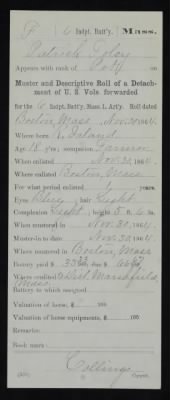 F 6 Indpt. Batt'y. Mass.
Patrick
Appears with rank of
Muster and Descriptive Roll of a Detach-
ment of U. S. Vols. forwarded
for the 6 Indpt. Battery, Mass. L. Art'y. Roll dated
Boston, Mass Nov. 30, 1864.
Where born Ireland
Age 18 y'rs; occupation Farmer
When enlisted Nov. 30, 1864.
Where enlisted Boston, Mass
For what period enlisted 1 years.
Eyes ; hair Light
Complexion Light; height 5 ft. 6 in.
When mustered in Nov. 30, 1864.
Muster-in date Nov. 30, 1864.
Where mustered in Boston, Mass
Bounty paid $ 33 ; due $ 66
Where credited Dist. Marshfield,
Mass
Battery to which assigned
Valuation of horse, $ 100
Valuation of horse equipments, $ 100
Remarks:
Book mark:
Collings
Copyist.